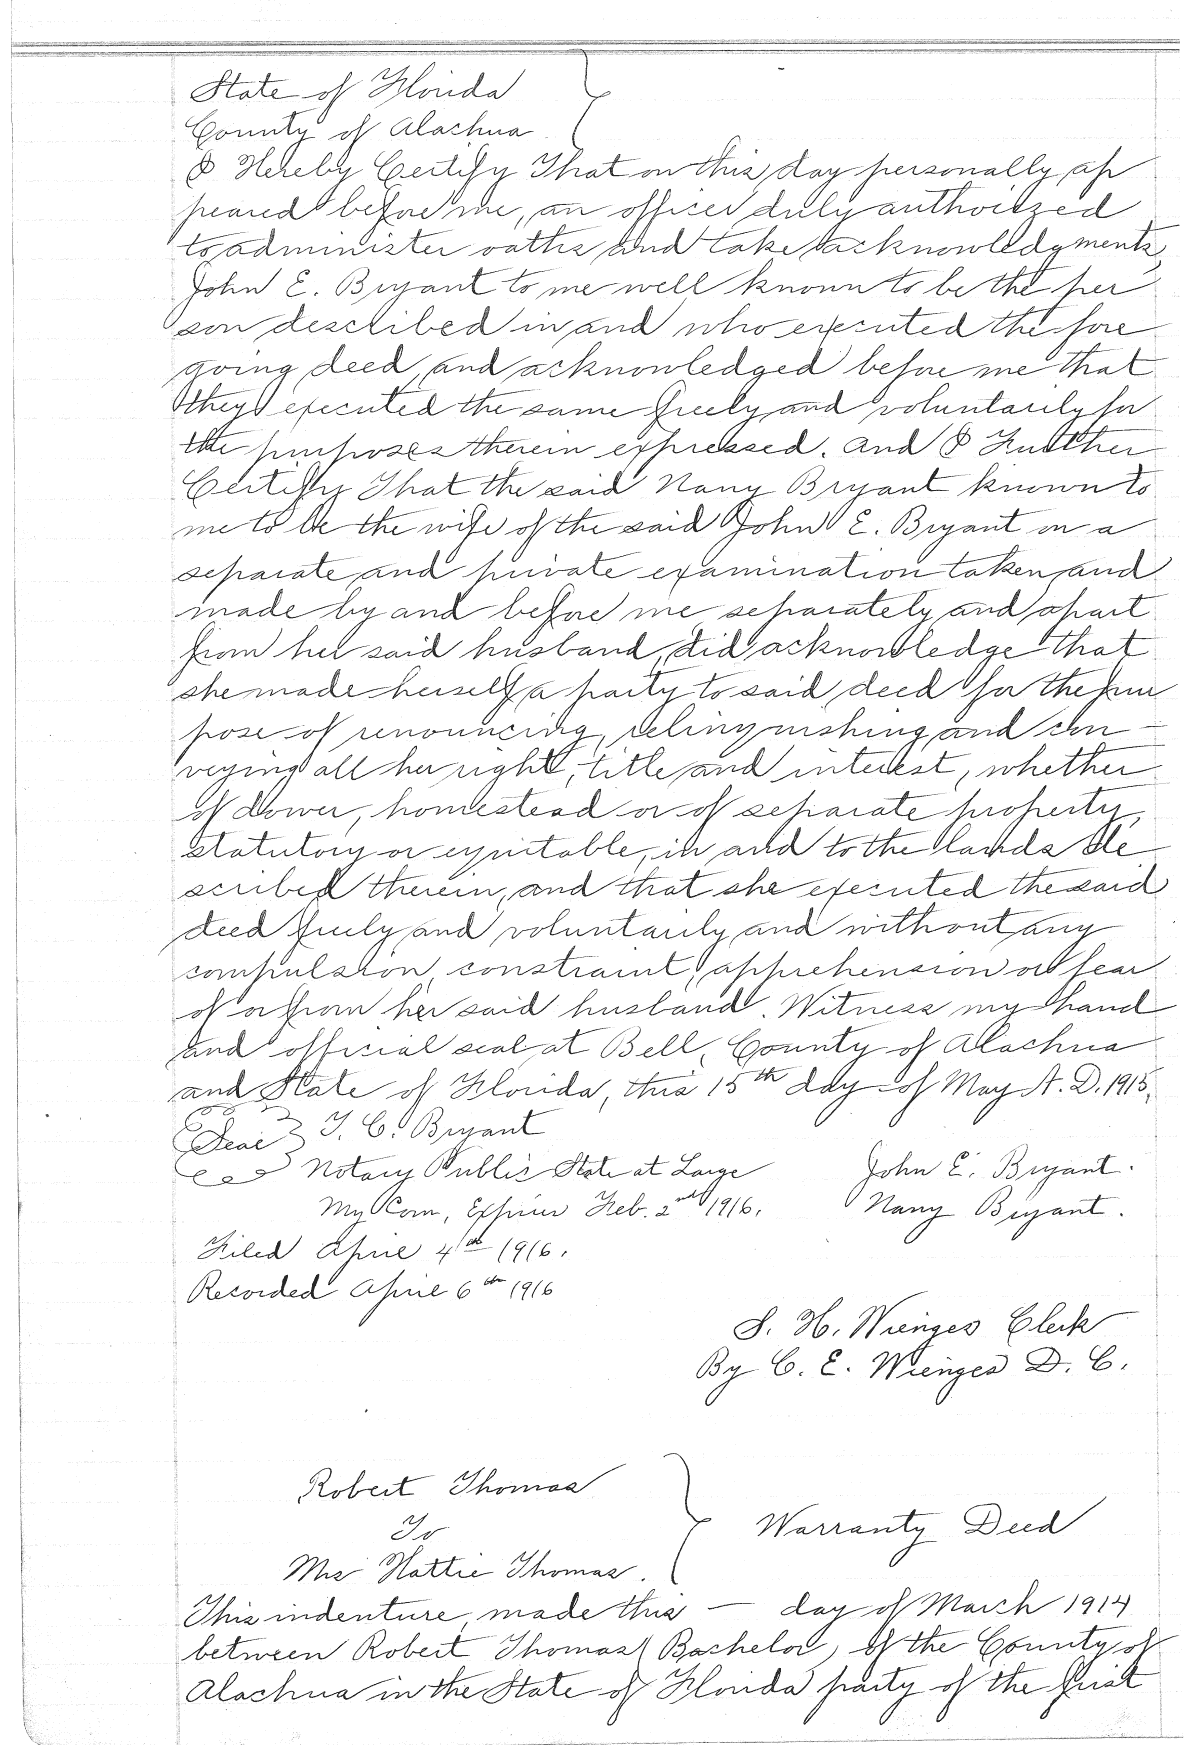 State of Florida
County of Alachua
I Hereby Certify That on this day personally ap
peared before me, an officer duly authorized
to administer oaths and take acknowledgments,
John E. Bryant to me well known to be the per
son described in and who executed the fore
going deed, and acknowledged before me that
they executed the same freely and voluntarily for
the purposes therein expressed. And I Further
Certify That the said Nany Bryant known to
me to be the wife of the said John E. Bryant on a
separate and private examination taken and
made by and before me, separately and apart
from her said husband, did acknowledge that
she made herself a party to said deed for the pur
pose of renouncing, relinquishing and con-
veying all her right, title and interest, whether
of dower, homestead or of separate property,
statutory or equitable, in and to the lands de
scribed therein, and that she executed the said
deed freely and voluntarily and without any
compulsion, constraint, apprehension or fear
of or from her said husband. Witness my hand
and official seal at Bell, County of Alachua
and State of Florida, this 15th day of May A. D. 1915.
Seal T. C. Bryant
Notary Public State at Large John E. Bryant.
My Com, Expires Feb. 2nd 1916. Nany Bryant.
Filed April 4th 1916.
Recorded April 6th 1916
S. H. Wienges Clerk
By C. E. Wienges D. C.
Robert Thomas
To Warranty Deed
Mrs Hattie Thomas.
This indenture, made this — day of March 1914
between Robert Thomas (Bachelor) of the County of
Alachua in the State of Florida party of the first